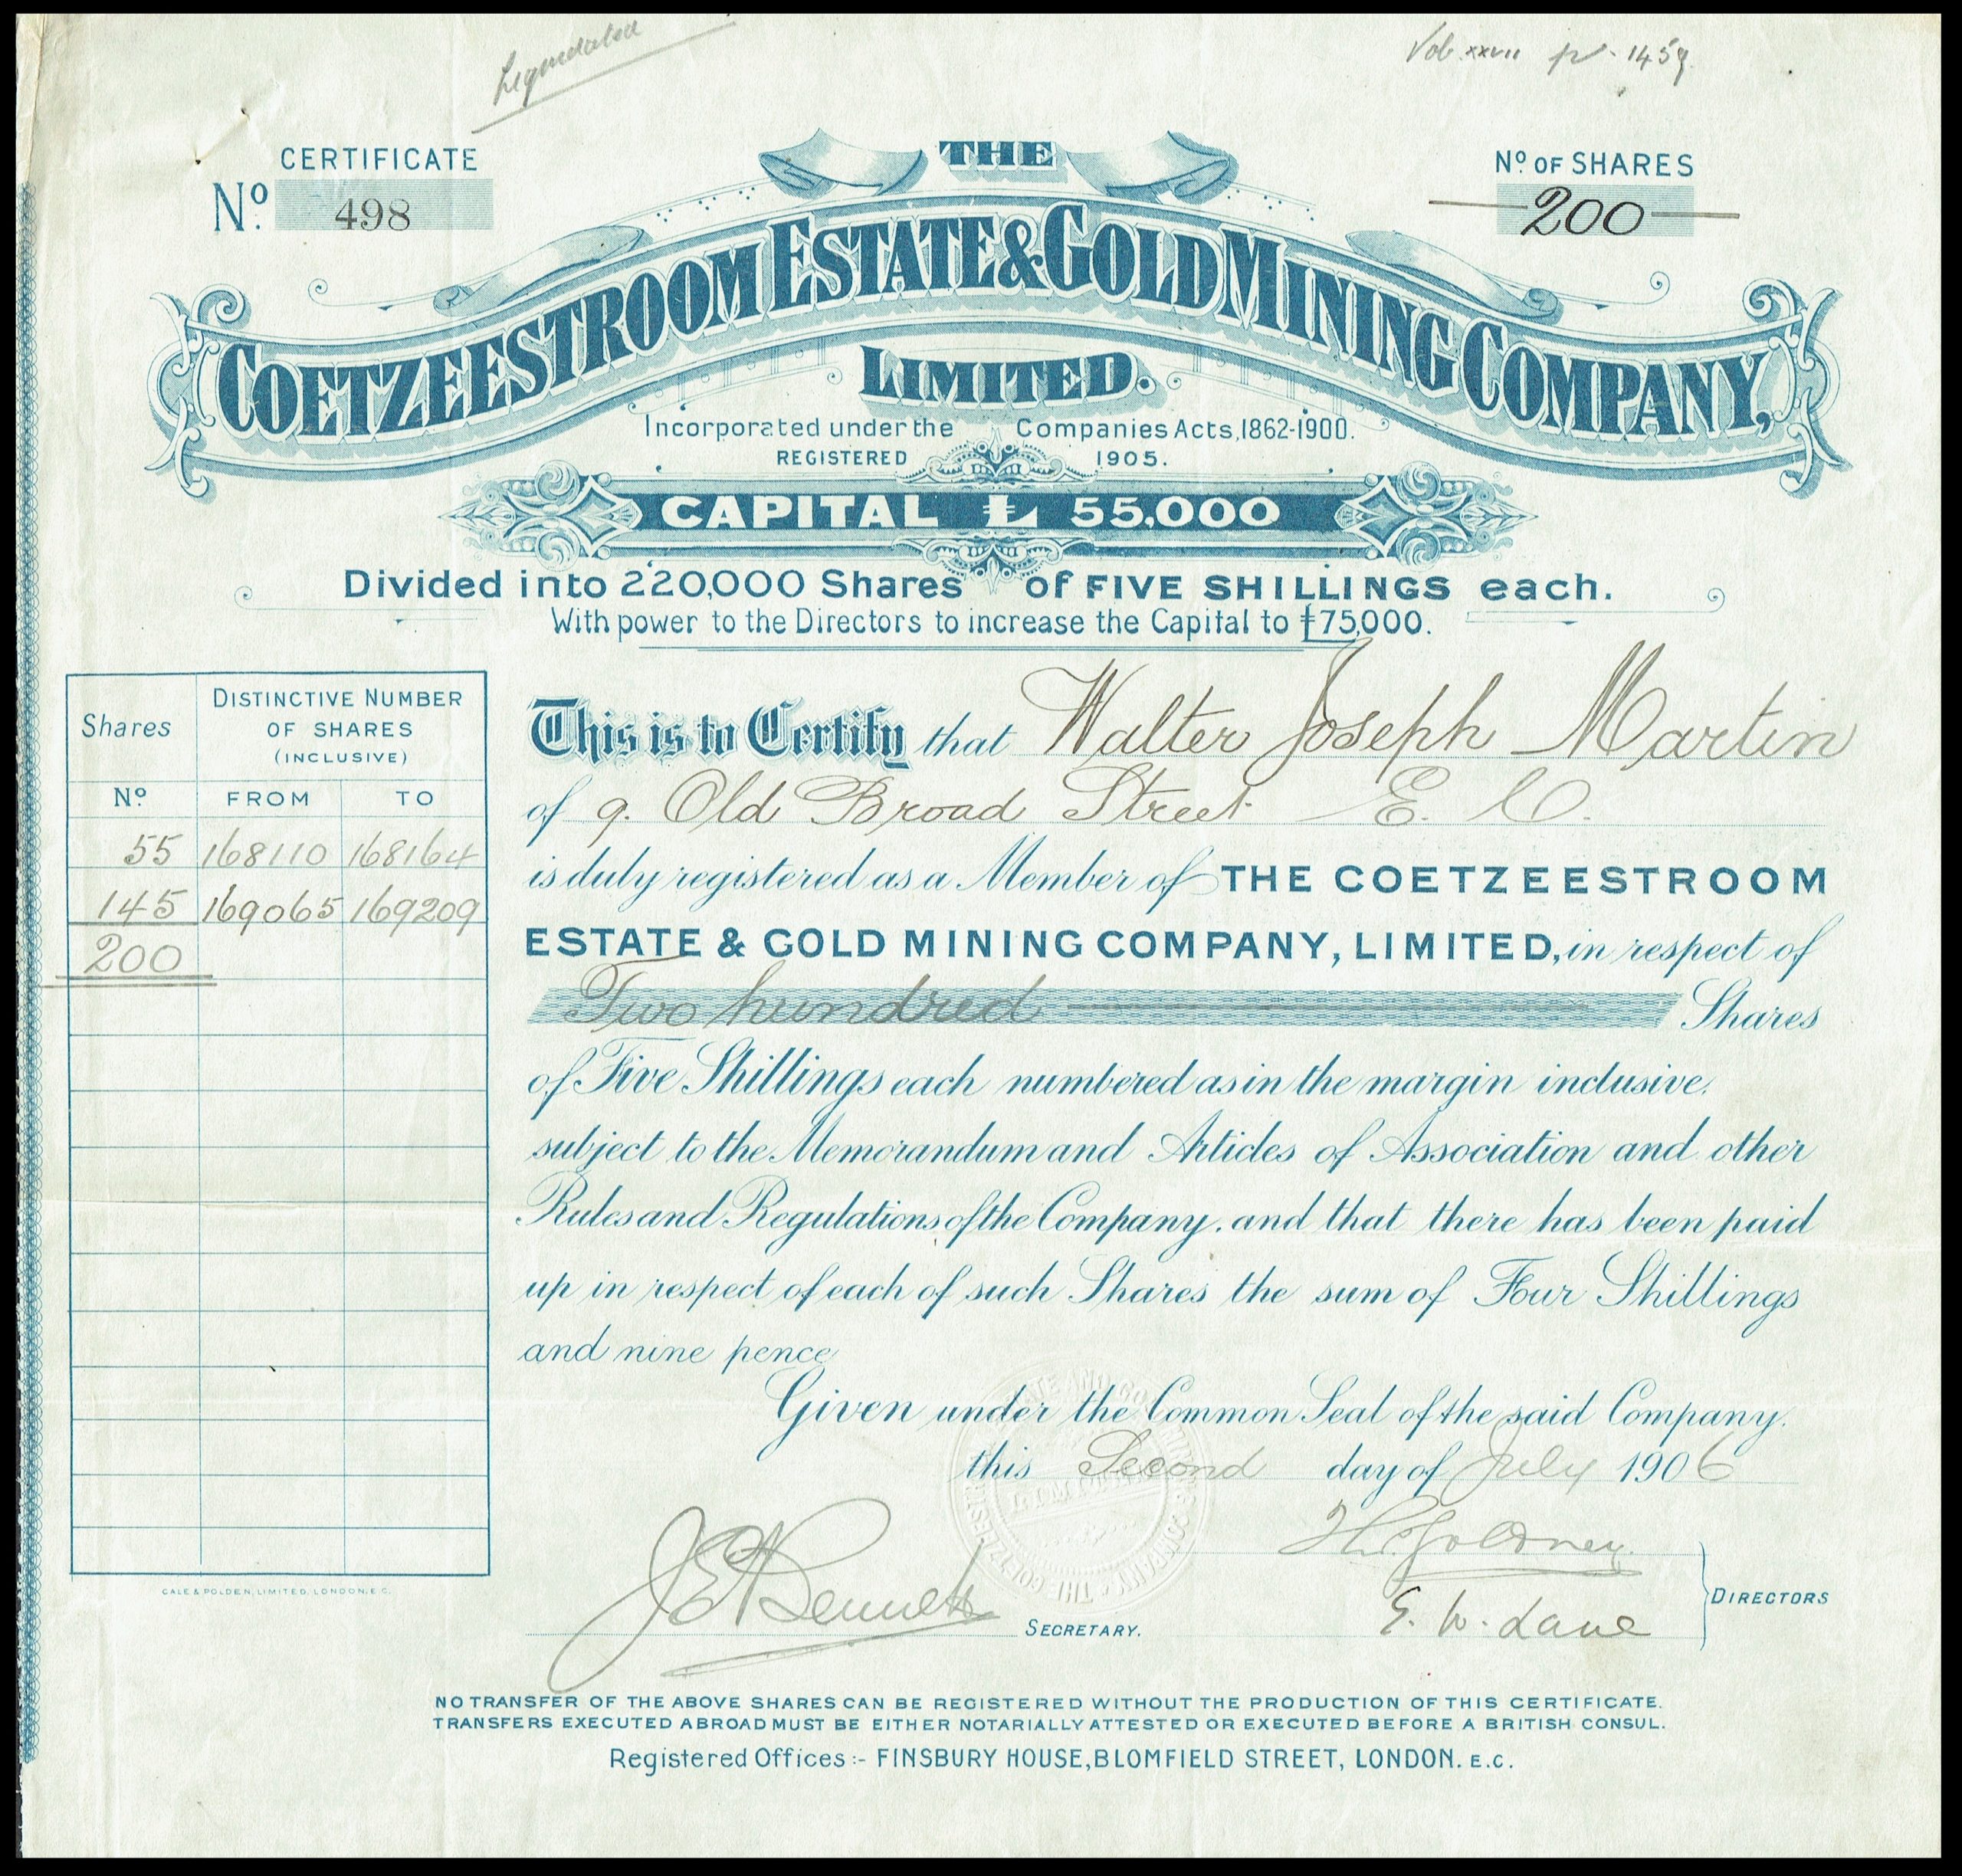 Liquidated
Vol. xxvii p. 1459.
CERTIFICATE
Nº. 498
Nº OF SHARES
200
THE
COETZEESTROOM ESTATE & GOLD MINING COMPANY,
LIMITED.
Incorporated under the Companies Acts, 1862-1900.
REGISTERED 1905.
CAPITAL £ 55,000
Divided into 220,000 Shares of FIVE SHILLINGS each.
With power to the Directors to increase the Capital to £75,000.
Shares DISTINCTIVE NUMBER
OF SHARES
(INCLUSIVE)
Nº FROM TO
55 168110 168164
145 169065 169209
200
This is to Certify that Walter Joseph Martin
of 9. Old Broad Street E. C.
is duly registered as a Member of THE COETZEESTROOM
ESTATE & GOLD MINING COMPANY, LIMITED, in respect of
Two hundred Shares
of Five Shillings each numbered as in the margin inclusive.
subject to the Memorandum and Articles of Association and other
Rules and Regulations of the Company, and that there has been paid
up in respect of each of such Shares the sum of Four Shillings
and nine pence
Given under the Common Seal of the said Company.
this Second day of July 1906
J E H Bennett
SECRETARY.
E. W. Lane
DIRECTORS
GALE & POLDEN, LIMITED, LONDON, E.C.
NO TRANSFER OF THE ABOVE SHARES CAN BE REGISTERED WITHOUT THE PRODUCTION OF THIS CERTIFICATE.
TRANSFERS EXECUTED ABROAD MUST BE EITHER NOTARIALLY ATTESTED OR EXECUTED BEFORE A BRITISH CONSUL.
Registered Offices :- FINSBURY HOUSE, BLOMFIELD STREET, LONDON. E.C.